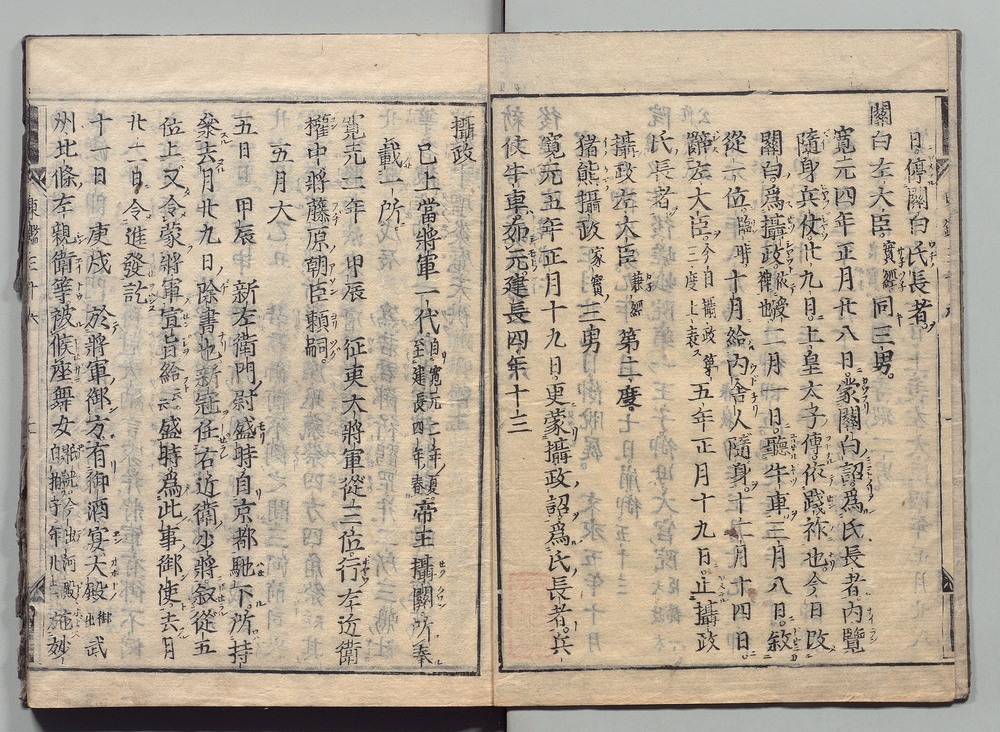 日。停關白氏長者。
關白左大臣 實經 同三男。
寛元四年正月廿八日。蒙關白詔。爲氏長者。内覽
隨身兵仗。廿九日。上皇太子傳。依踐祚也。今日改
關白。爲攝政。二月一日。聽牛車。三月八日。敘
從一位 臨時 十月給内舍人隨身。十二月十四日。
辭左大臣。今自攝政第三度上表 五年正月十九日。止攝政
氏長者。
攝政左大臣 兼經 第二度。
猪熊攝政 家實 三男
寛元五年正月十九日。更蒙攝政詔。爲氏長者。兵
仗牛車如元。建長四年十二
攝政
已上當將軍一代 自寛元二年夏至建長四年春 帝王攝關所奉
載一所。
寛元二年 甲辰 征夷大將軍從三位行左近衛
權中將藤原朝臣頼嗣
五月大
五日 甲辰 新左衛門尉盛時自京都馳下。所持
參去月廿九日除書也。新冠任右近衛少將。叙從五
位上。又令蒙將軍宣旨給云云。盛時爲此事御使。去月
廿二日。令進發訖
十一日 庚戌 於將軍御方。有御酒宴。大殿 御出 武
州北條左親衛等被候座。舞女 施妙
東鑑